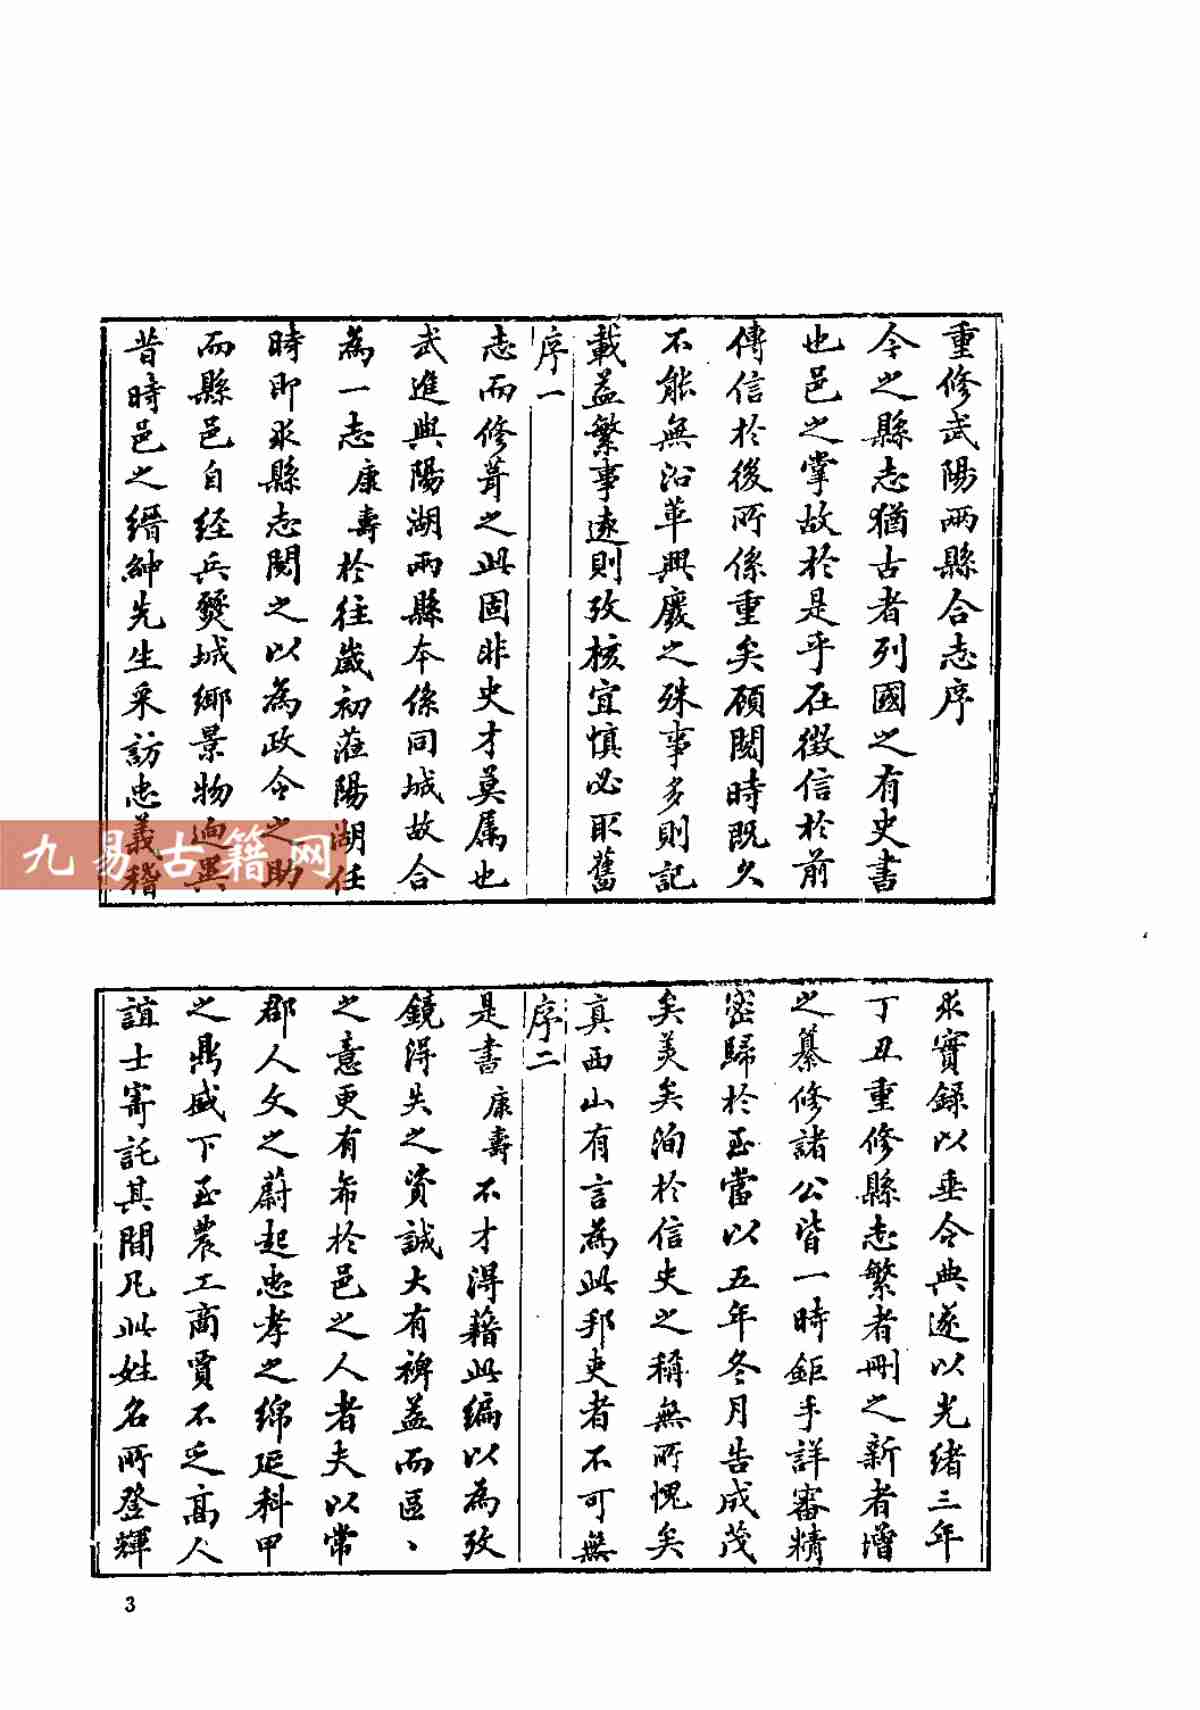 重修武陽兩縣合志序
今之縣志猶古者列國之有史書
也邑之掌故於是乎在徵信於前
傳信於後所係重矣顧閱時既久
不能無沿革興廢之殊事多則記
載益繁事遠則攷核宜慎必取舊
序一
志而修葺之此固非史才莫屬也
武進與陽湖兩縣本係同城故合
為一志康壽於往歲初蒞陽湖任
時即求縣志閱之以為政令之助
而縣邑自经兵燹城鄉景物迥異
昔時邑之縉紳先生采訪忠義稽
求實錄以垂令典遂以光緒三年
丁丑重修縣志繁者刪之新者增
之纂修諸公皆一時鉅手詳審精
密歸於至當以五年冬月告成茂
矣美矣洵於信史之稱無所愧矣
真西山有言為此邦吏者不可無
序二
是書康壽不才得藉此編以為攷
鏡得失之資誠大有裨益而區、
之意更有希於邑之人者夫以常
郡人文之蔚起忠孝之綿延科甲
之鼎盛下至農工商賈不乏高人
誼士寄託其間凡此姓名所登輝
3
九易古籍网